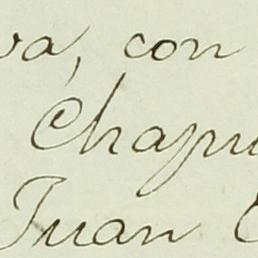 va, con
Chapu
Juan